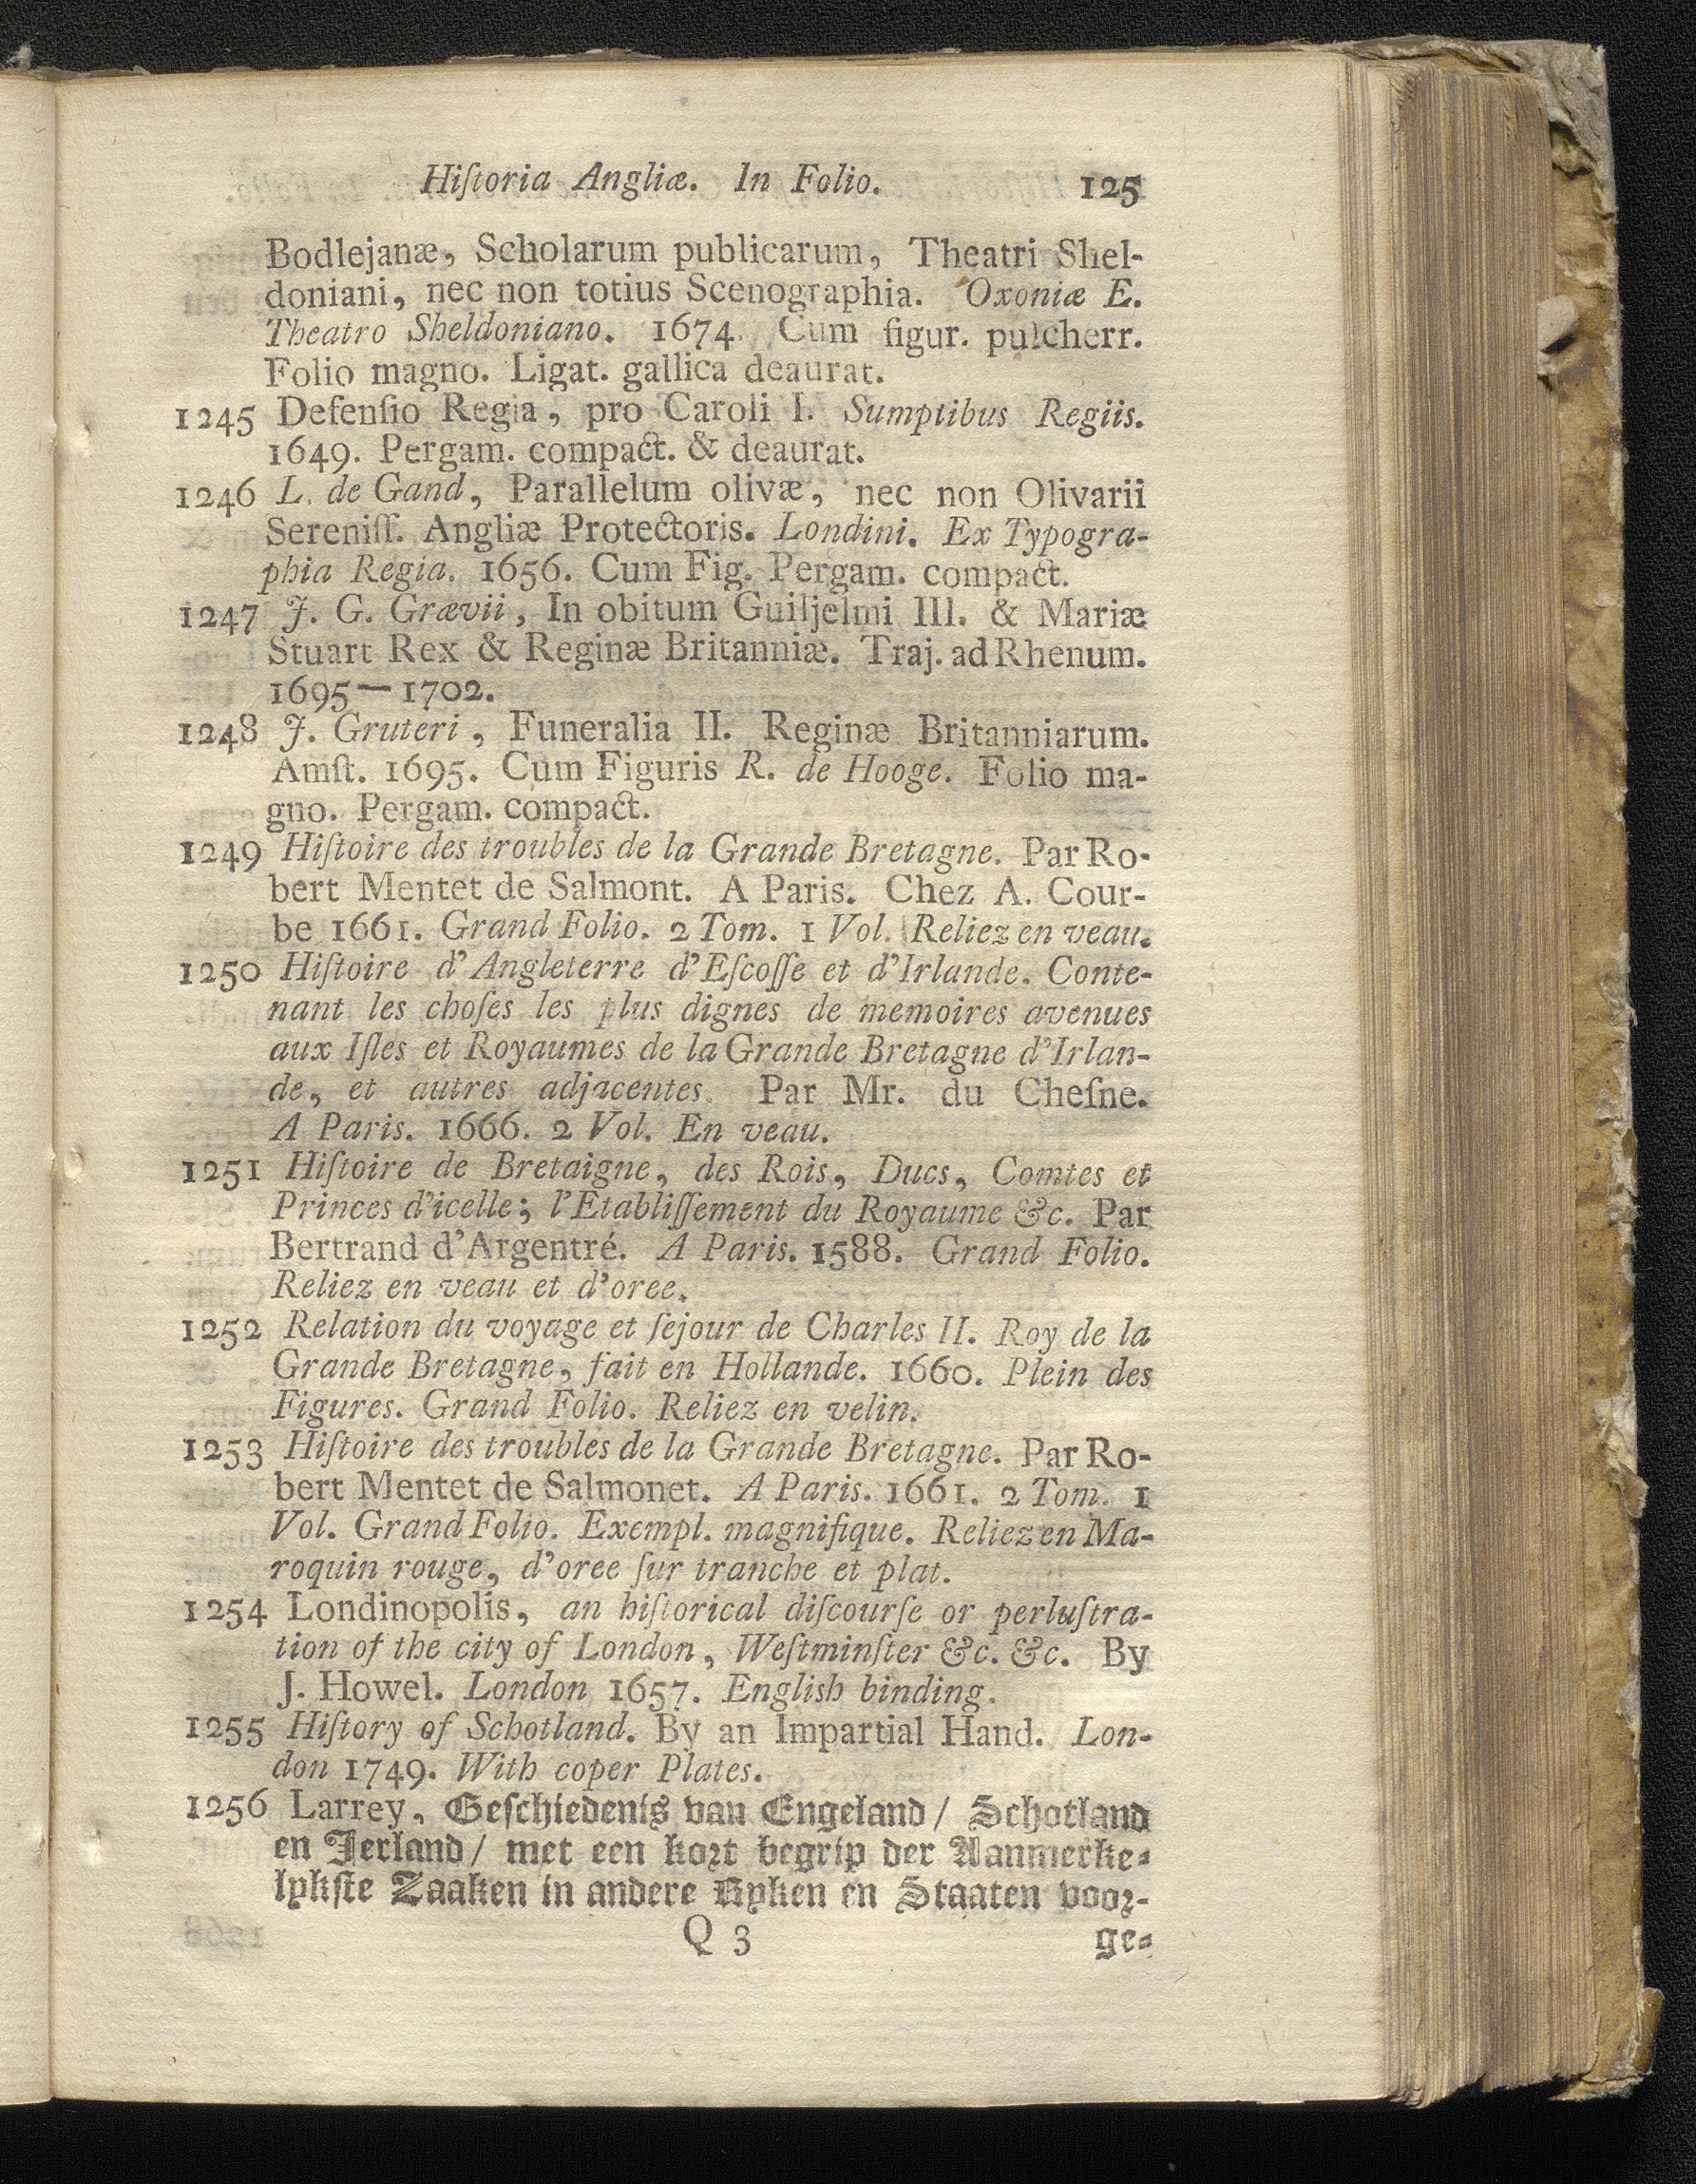 Hiſtoria Angliæ. In Folio. 125
Bodlejanæ, Scholarum publicarum, Theatri Shel-
doniani, nec non totius Scenographia. Oxoniæ E.
Theatro Sheldoniano. 1674. Cum figur. pulcherr.
Folio magno. Ligat. gallica deaurat.
1245 Defenſio Regia, pro Caroli I. Sumptibus Regiis.
1649. Pergam. compact. & deaurat.
1246 L. de Gand, Parallelum olivæ, nec non Olivarii
Sereniſſ. Angliæ Protectoris. Londini. Ex Typogra-
phia Regia. 1656. Cum Fig. Pergam. compact.
1247 J. G. Grævii, In obitum Guiljelmi III. & Mariæ
Stuart Rex & Reginæ Britanniæ. Traj. ad Rhenum.
1695—1702.
1248 J. Gruteri, Funeralia II. Reginæ Britanniarum.
Amſt. 1695. Cum Figuris R. de Hooge. Folio ma-
gno. Pergam. compact.
1249 Hiſtoire des troubles de la Grande Bretagne. Par Ro-
bert Mentet de Salmont. A Paris. Chez A. Cour-
be 1661. Grand Folio. 2 Tom. 1 Vol. Reliez en veau.
1250 Hiſtoire d'Angleterre d'Eſcoſſe et d'Irlande. Conte-
nant les choſes les plus dignes de memoires avenues
aux Iſles et Royaumes de la Grande Bretagne d'Irlan-
de, et autres adjacentes. Par Mr. du Cheſne.
A Paris. 1666. 2 Vol. En veau.
1251 Hiſtoire de Bretaigne, des Rois, Ducs, Comtes et
Princes d'icelle; l'Etabliſſement du Royaume &c. Par
Bertrand d'Argentré. A Paris. 1588. Grand Folio.
Reliez en veau et d'oree.
1252 Relation du voyage et ſejour de Charles II. Roy de la
Grande Bretagne, fait en Hollande. 1660. Plein des
Figures. Grand Folio. Reliez en velin.
1253 Hiſtoire des troubles de la Grande Bretagne. Par Ro-
bert Mentet de Salmonet. A Paris. 1661. 2 Tom. 1
Vol. Grand Folio. Exempl. magnifique. Reliez en Ma-
roquin rouge, d'oree ſur tranche et plat.
1254 Londinopolis, an hiſtorical diſcourſe or perluſtra-
tion of the city of London, Weſtminſter &c. &c. By
J. Howel. London 1657. English binding.
1255 Hiſtory of Schotland. By an Impartial Hand. Lon-
don 1749. With coper Plates.
1256 Larrey, Geſchiedenis van Engeland/ Schotland
en Ierland/ met een kort begrip der Aanmerke-
lykſte Zaaken in andere Ryken en Staaten voor-
Q 3 ge-